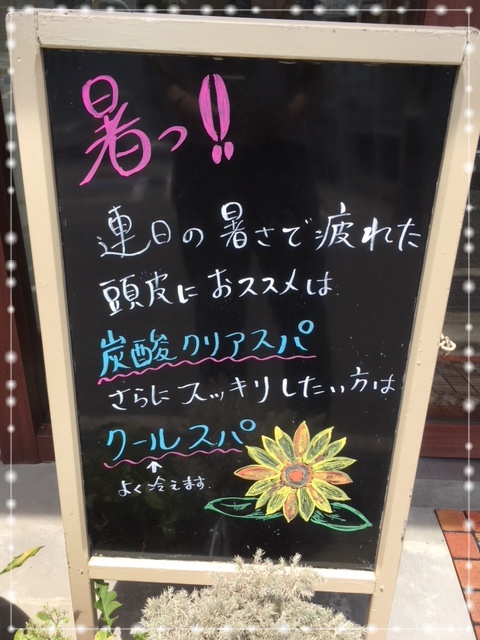 暑っ!!
連日の暑さで疲れた
頭皮におススメは
炭酸クリアスパ
さらにスッキリしたい方は
クールスパ
↑
よく冷えます.